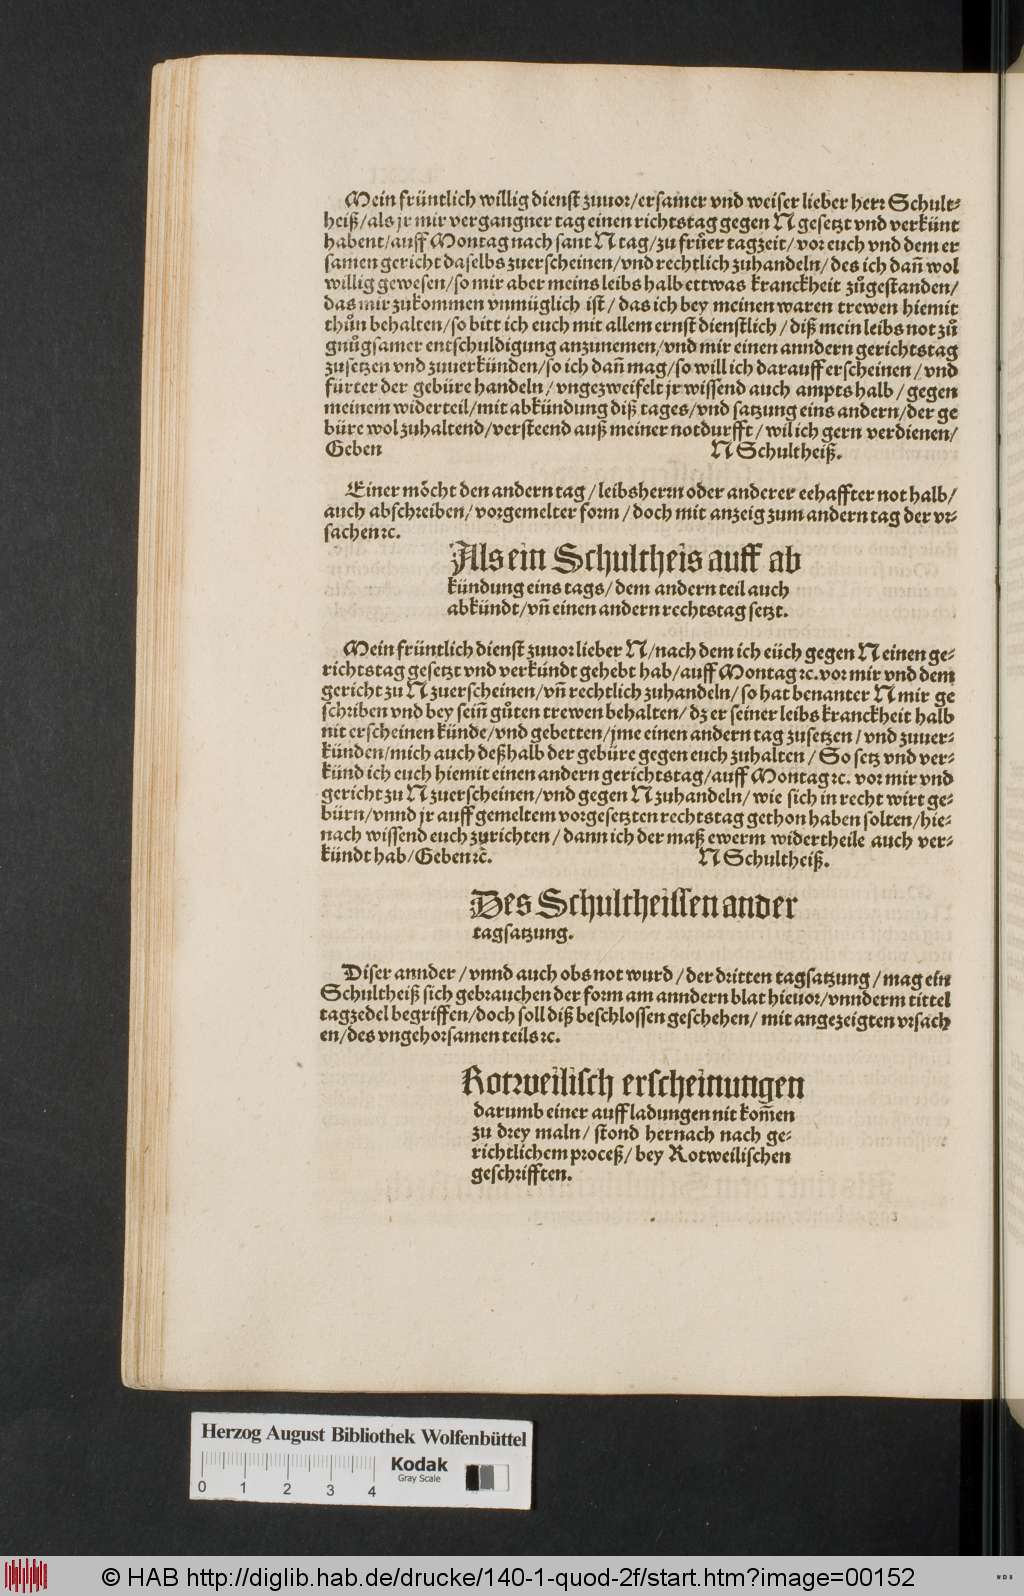 Mein früntlich willig dienst zuuor/ersamer vnd weiser lieber herr Schult-
heiß/als jr mir vergangner tag einen richtstag gegen N gesetzt vnd verkünt
habent/auff Montag nach sant N tag/zu frůer tagzeit/vor euch vnd dem er
samen gericht daselbs zuerscheinen/vnd rechtlich zuhandeln/des ich dañ wol
willig gewesen/so mir aber meins leibs halb ettwas kranckheit zůgestanden/
das mir zukommen vnmüglich ist/das ich bey meinen waren trewen hiemit
thůn behalten/so bitt ich euch mit allem ernst dienstlich/diß mein leibs not zů
gnůgsamer entschuldigung anzunemen/vnd mir einen anndern gerichtstag
zusetzen vnd zuuerkünden/so ich dañ mag/so will ich darauff erscheinen/vnd
fürter der gebüre handeln/vngezweifelt jr wissend auch ampts halb/gegen
meinem widerteil/mit abkündung diß tages/vnd satzung eins andern/der ge
büre wol zuhaltend/versteend auß meiner notdurfft/wil ich gern verdienen/
Geben N Schultheiß.
Einer möcht den andern tag/leibsherrn oder anderer eehaffter not halb/
auch abschreiben/vorgemelter form/doch mit anzeig zum andern tag der vr-
sachen ꝛc.
Als ein Schultheis auff ab
kündung eins tags/dem andern teil auch
abkündt/vñ einen andern rechtstag setzt.
Mein früntlich dienst zuuor lieber N/nach dem ich eüch gegen N einen ge-
richtstag gesetzt vnd verkündt gehebt hab/auff Montag ꝛc. vor mir vnd dem
gericht zu N zuerscheinen/vñ rechtlich zuhandeln/so hat benanter N mir ge
schriben vnd bey seiñ gůten trewen behalten/dz er seiner leibs kranckheit halb
nit erscheinen künde/vnd gebetten/jme einen andern tag zusetzen/vnd zuuer-
künden/mich auch deßhalb der gebüre gegen euch zuhalten/So setz vnd ver-
künd ich euch hiemit einen andern gerichtstag/auff Montag ꝛc. vor mir vnd
gericht zu N zuerscheinen/vnd gegen N zuhandeln/wie sich in recht wirt ge-
bürn/vnnd jr auff gemeltem vorgesetzten rechtstag gethon haben solten/hie-
nach wissend euch zurichten/dann ich der maß ewerm widertheile auch ver-
kündt hab/Geben ꝛc. N Schultheiß.
Des Schultheissen ander
tagsatzung.
Diser annder/vnnd auch obs not wurd/der dritten tagsatzung/mag ein
Schultheiß sich gebrauchen der form am anndern blat hieuor/vnnderm tittel
tagzedel begriffen/doch soll diß beschlossen geschehen/mit angezeigten vrsach
en/des vngehorsamen teils ꝛc.
Rotweilisch erscheinungen
darumb einer auff ladungen nit kom̃en
zu drey maln/stond hernach nach ge-
richtlichem proceß/bey Rotweilischen
geschrifften.
Herzog August Bibliothek Wolfenbüttel
Kodak
Gray Scale
0 1 2 3 4
© HAB http://diglib.hab.de/drucke/140-1-quod-2f/start.htm?image=00152